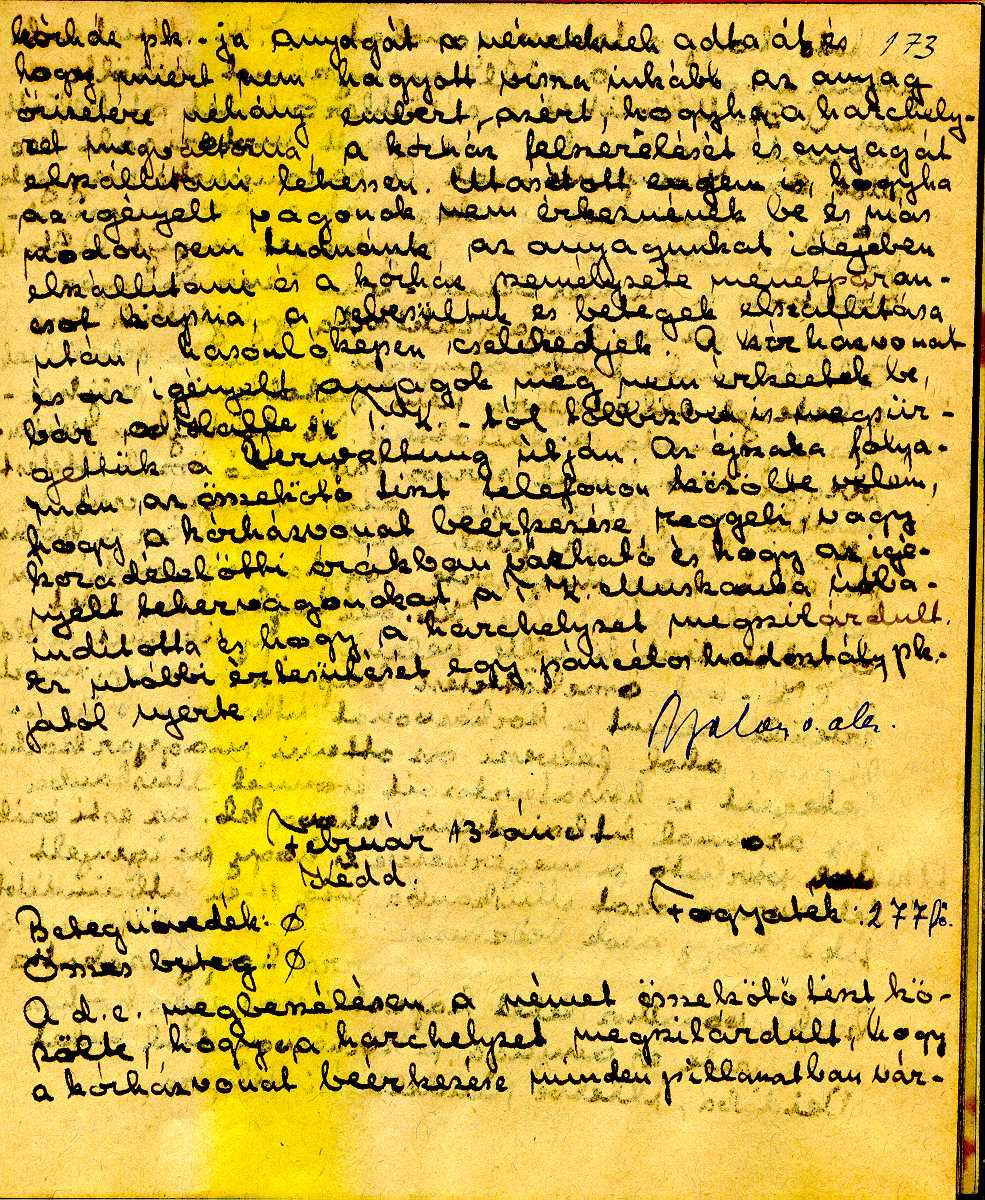 kórház pk.-ja anyagát a németeknek adta át és 173
hogy miért nem hagyott vissza inkább az anyag
őrizetére néhány embert, azért, hogyha a harchely-
zet megváltozna, a kórház felszerelését és anyagát
elszállítani lehessen. Utasított engem is, hogyha
az igényelt vagonok nem érkeznének be és más
módon sem tudnánk az anyagunkat idejében
elszállítani és a kórház személyzete menetparan-
csot kapna, a sebesültek és betegek elszállítása
után, hasonlóképen cselekedjek. A kórházvonat
és az igényelt anyagok még nem érkeztek be,
bár T. K.-tól többízben is megsür-
gettük a Verwaltung útján. Az éjszaka folya-
mán az összekötő tiszt telefonon közölte velem,
hogy a kórházvonat beérkezése reggeli, vagy
koradélelőtti órákban várható és hogy az igé-
nyelt tehervagonokat a T.K. Muskauba útba-
indította és hogy a harchelyzet megszilárdult.
Ez utóbbi értesülését egy páncélos hadosztály pk.-
jától nyerte.
Február 13-án
Kedd.
Betegnövedék: Ø Fogyaték: 277 fő.
Összes beteg: Ø
A d.e. megbeszélésen a német összekötő tiszt kö-
zölte, hogy a harchelyzet megszilárdult, hogy
a kórházvonat beérkezése minden pillanatban vár-